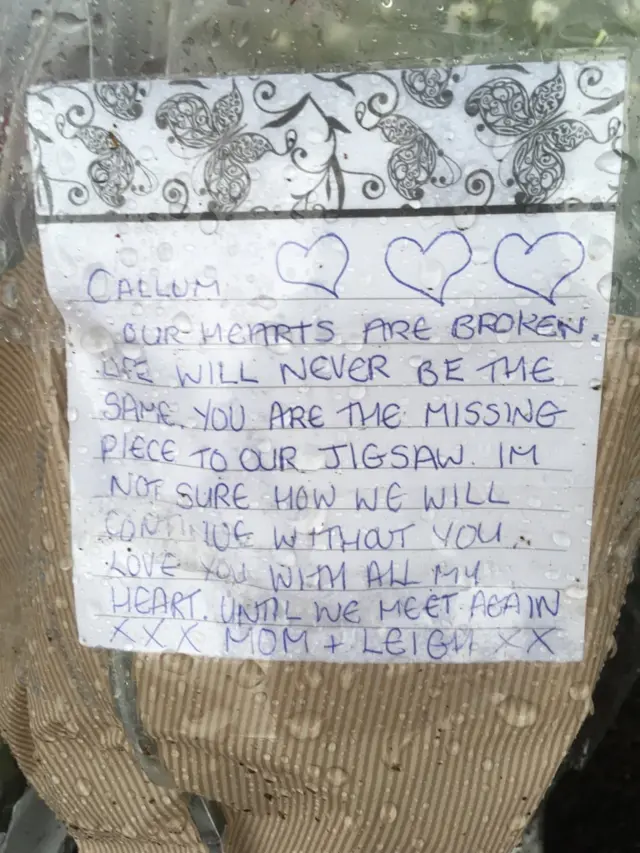 CALLUM
OUR HEARTS ARE BROKEN.
LIFE WILL NEVER BE THE
SAME. YOU ARE THE MISSING
PIECE TO OUR JIGSAW. IM
NOT SURE HOW WE WILL
CONTINUE WITHOUT YOU.
LOVE YOU WITH ALL MY
HEART. UNTIL WE MEET AGAIN
XXX MOM + LEIGH XX